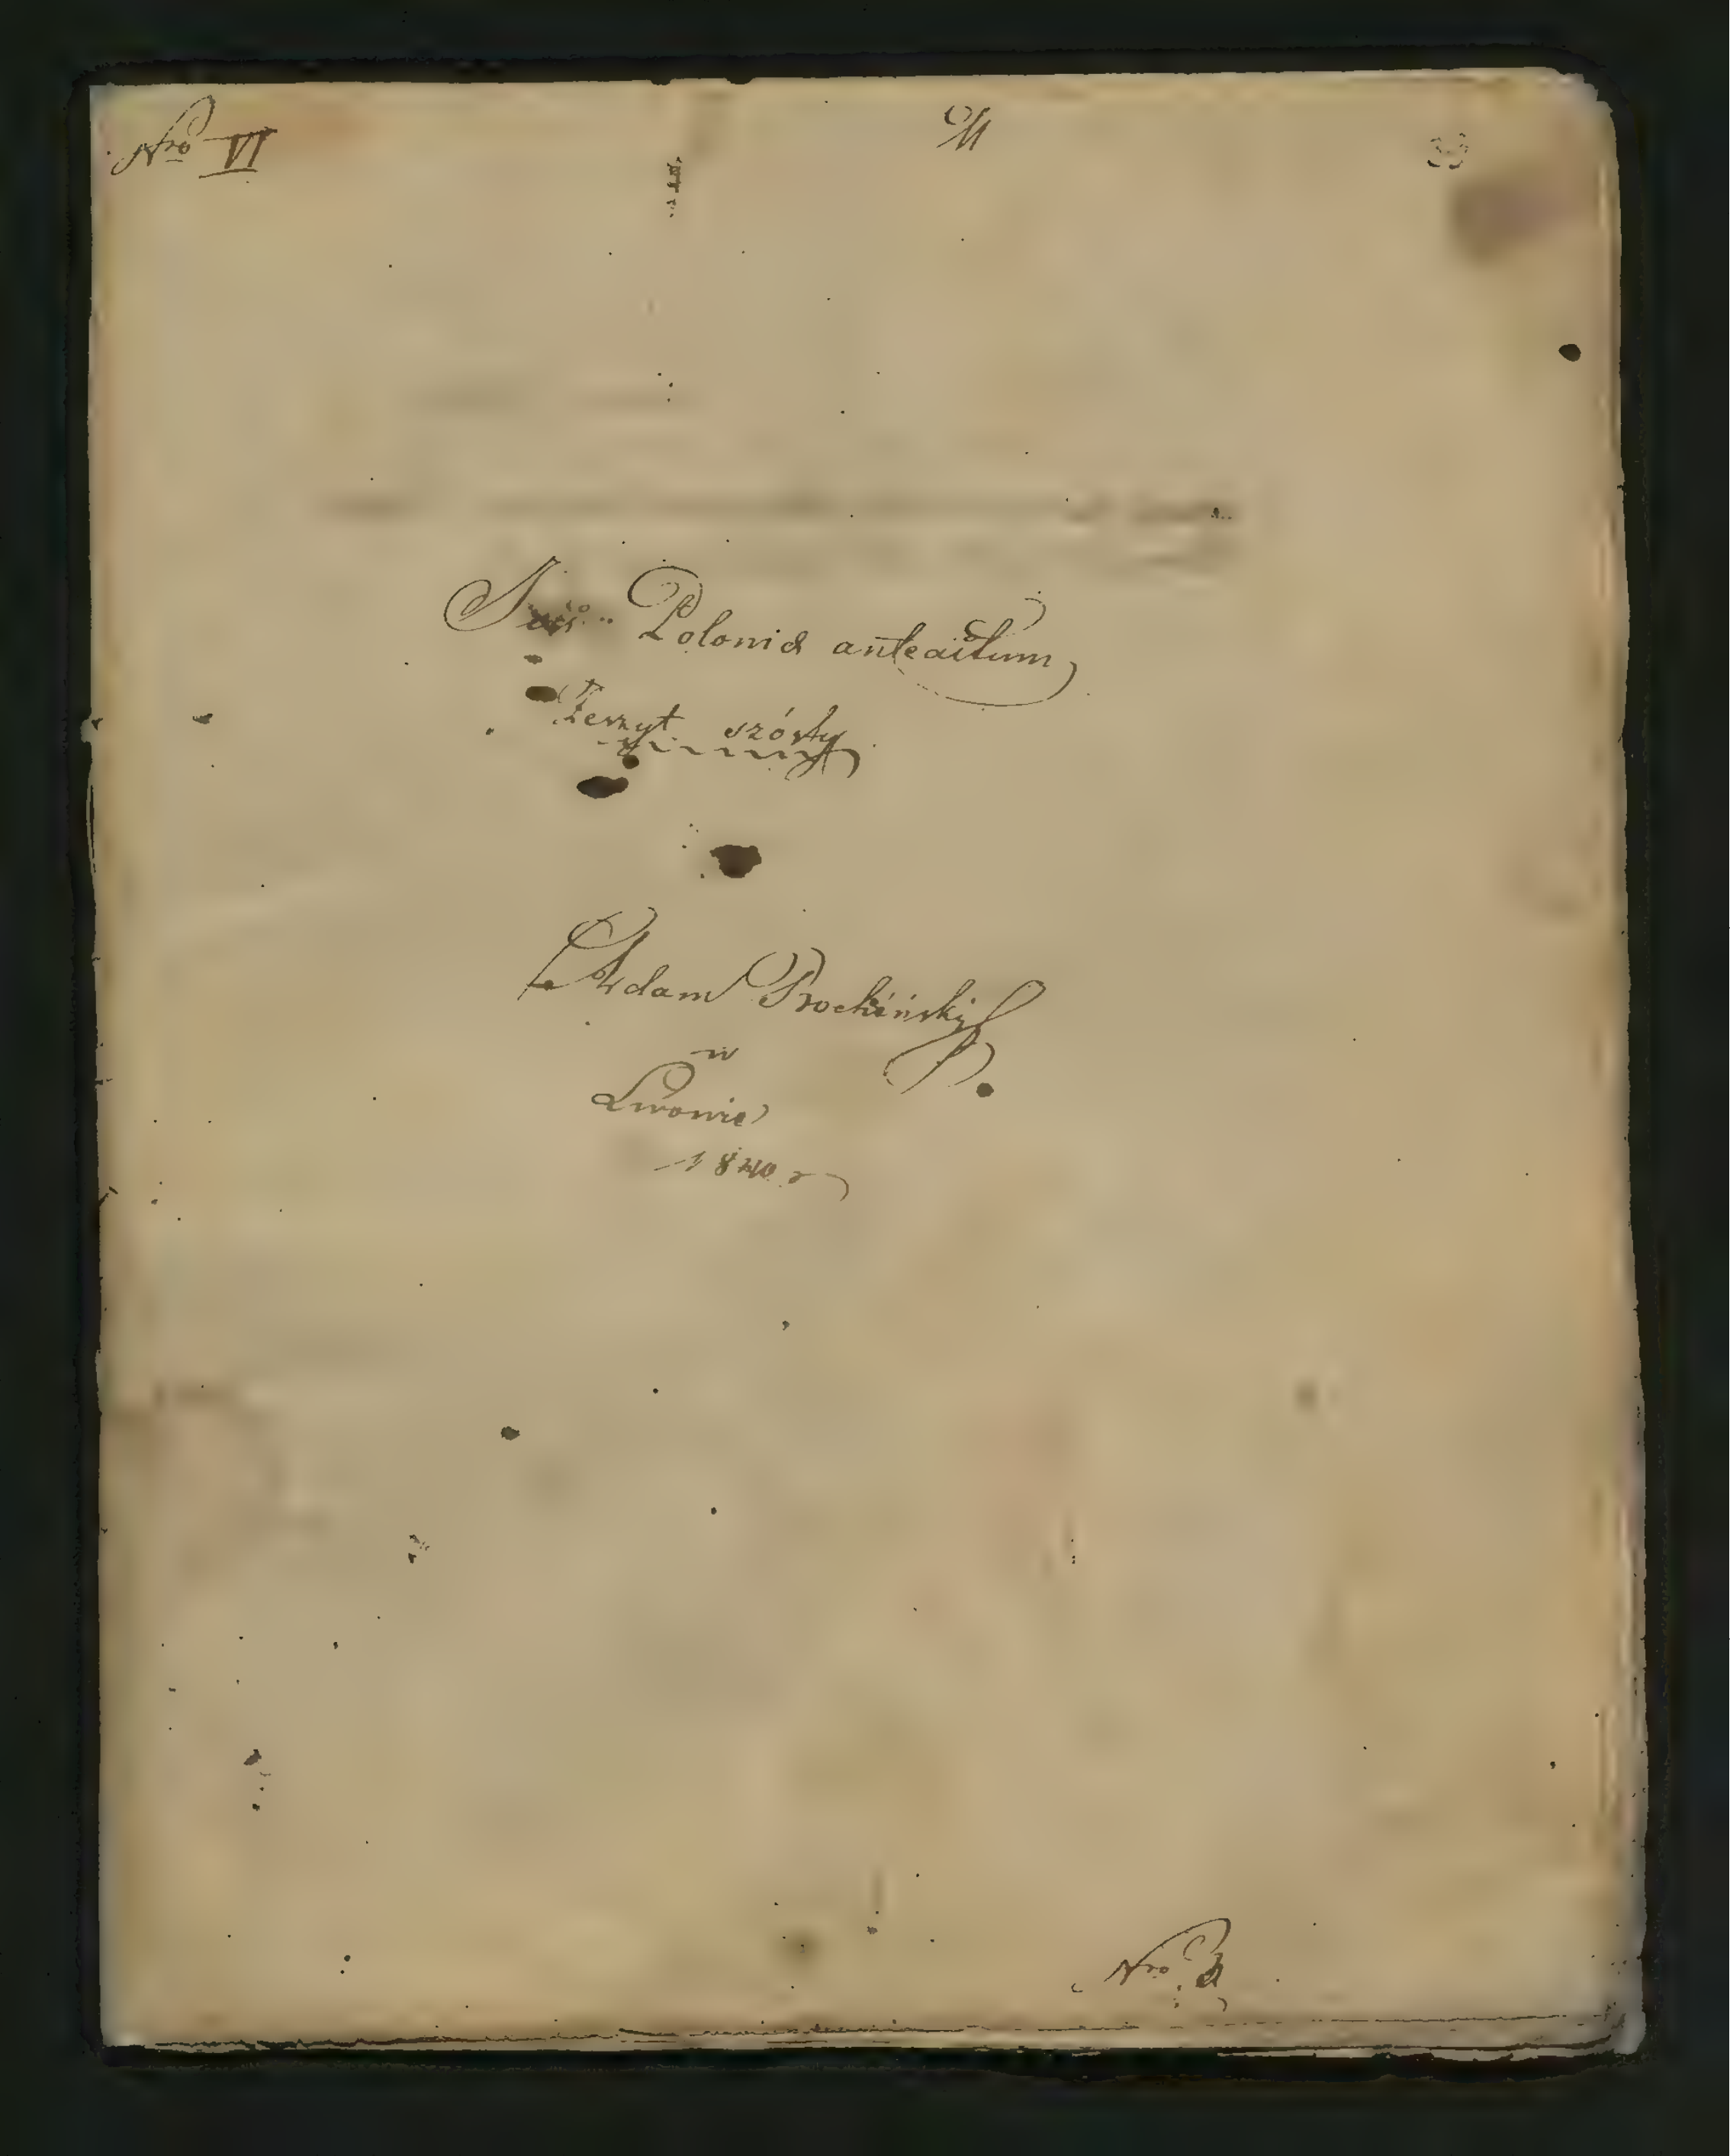 Nro VI
M
Jus Polonia anteactum
Zeszyt szósty
Adam Prochiński
w
Lwowie
1840 r
Nro